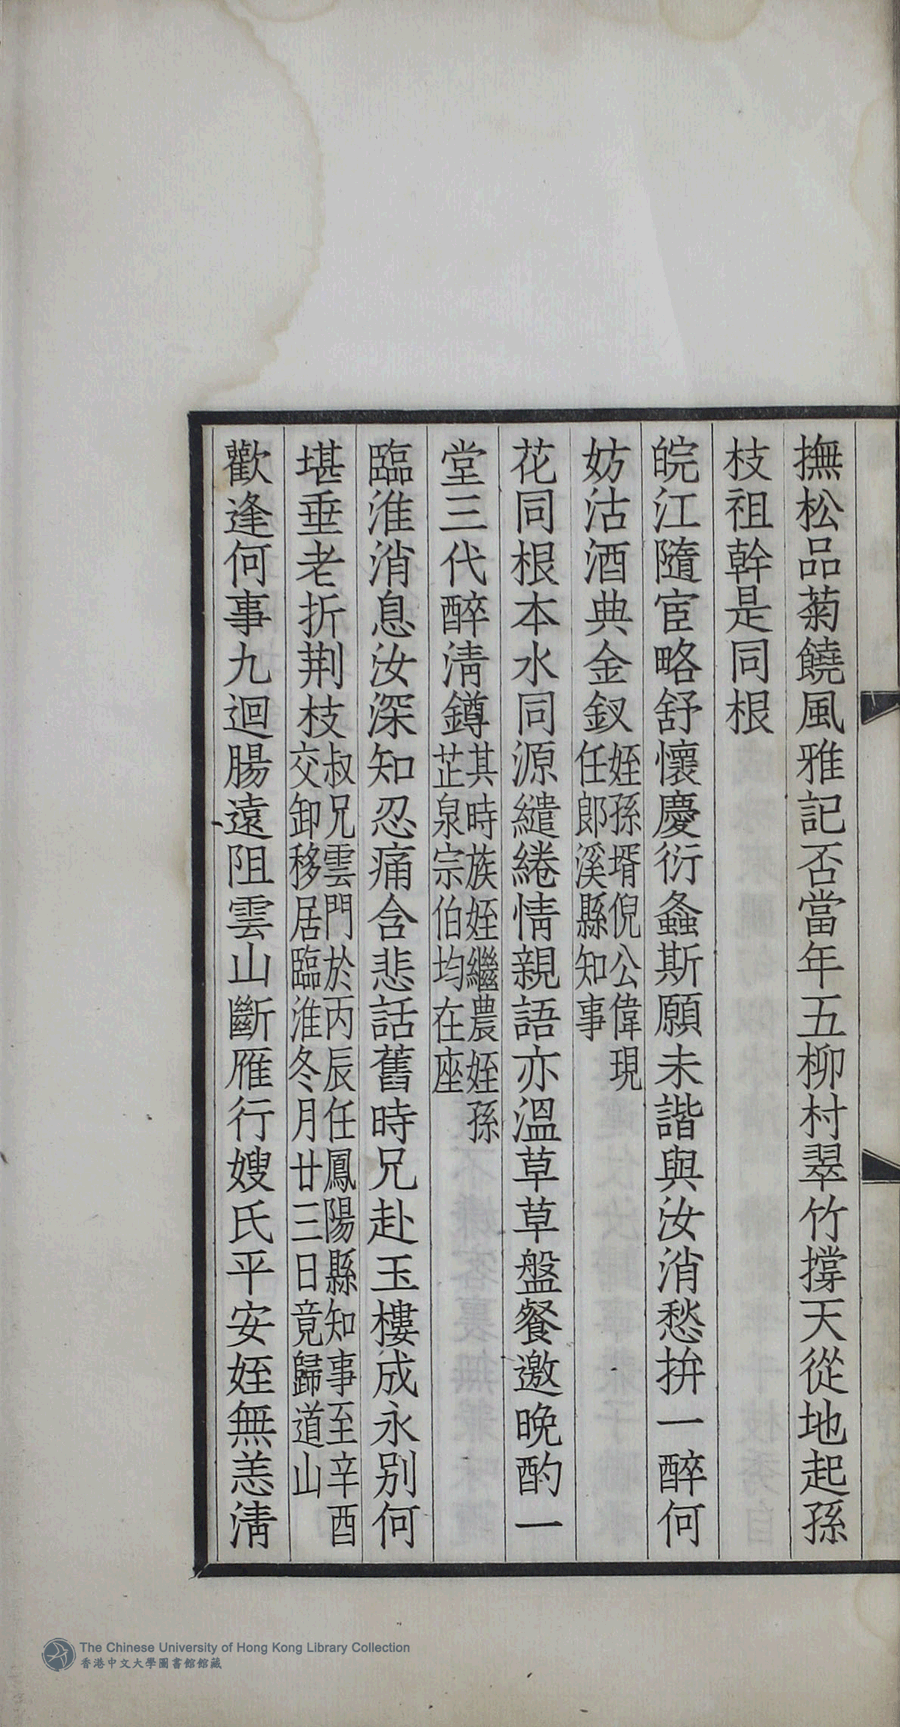 撫松品菊饒風雅記否當年五柳村翠竹撐天從地起孫
枝祖幹是同根
皖江隨宦略舒懷慶衍螽斯願未諧與汝消愁拚一醉何
妨沽酒典金釵姪孫壻倪公偉現任郎溪縣知事
花同根本水同源繾綣情親語亦溫草草盤餐邀晚酌一
堂三代醉淸鐏其時族姪繼農姪孫芷泉宗伯均在座
臨淮消息汝深知忍痛含悲話舊時兄赴玉樓成永別何
堪垂老折荆枝叔兄雲門於丙辰任鳳陽縣知事至辛酉交卸移居臨淮冬月廿三日竟歸道山
歡逢何事九迴腸遠阻雲山斷雁行嫂氏平安姪無恙淸
The Chinese University of Hong Kong Library Collection
香港中文大學圖書館館藏